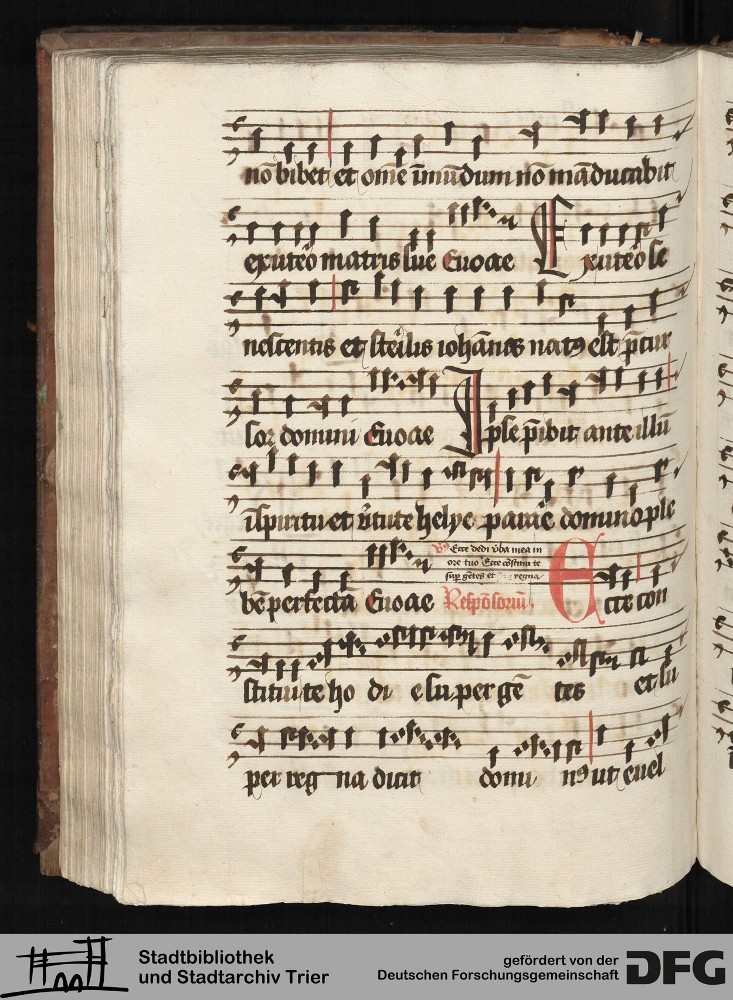 nō bibet et om̄e īmūdum nō māducabit
ex uteō matris sue Euoae Ex uteō se
nescentis et steilis iohānes natꝰ est p̄cur
sor domini Euoae Ipse p̄ibit ante illū
ī spiritu et v̄tute helye parare domino ple
bē perfectā Euoae Ecce con
Ecce dedi v̄ba mea in
ore tuo Ecce cōstitui te
sup gētes et regna
Respōsoriū.
stitui te ho di e super gē tes et su
per reg na dicit domi nꝰ ut euel
Stadtbibliothek
und Stadtarchiv Trier
gefördert von der
Deutschen Forschungsgemeinschaft
DFG